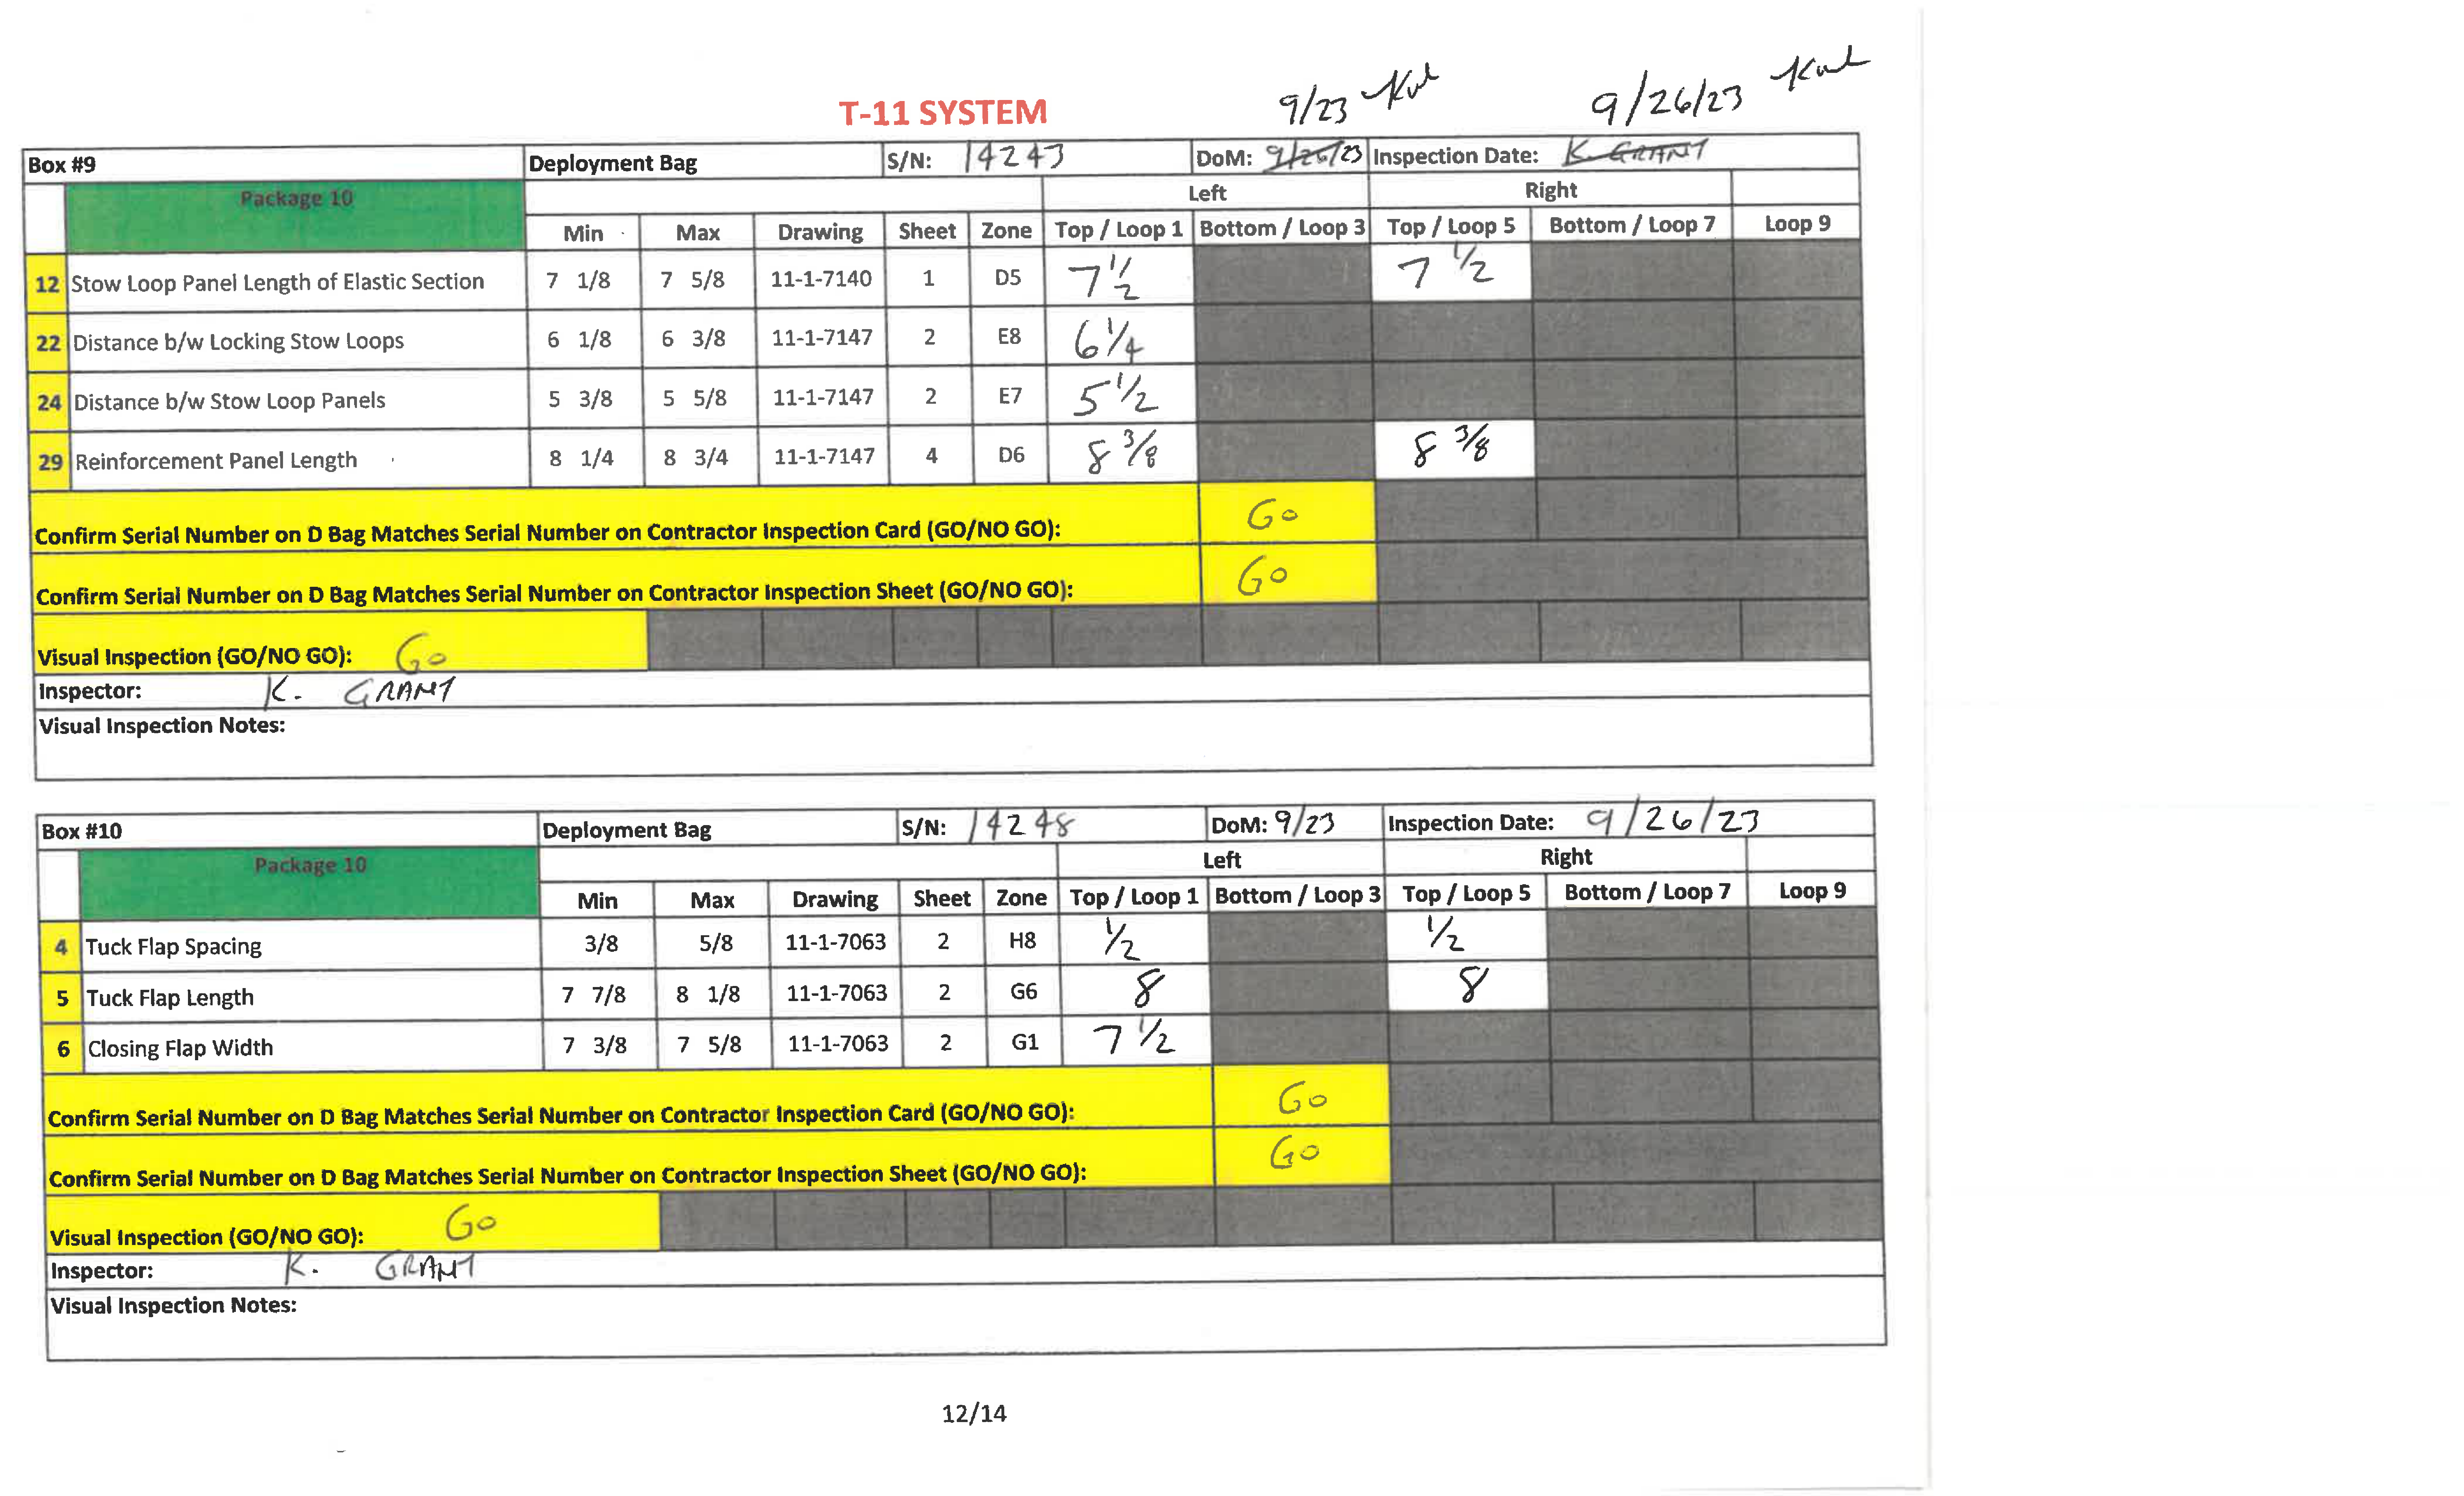 9/23
9/26/23
T-11 SYSTEM
Box #9 Deployment Bag S/N: 14243 DoM: 9/26/23 Inspection Date: K. GRANT
Package 10 Left Right
Min Max Drawing Sheet Zone Top / Loop 1 Bottom / Loop 3 Top / Loop 5 Bottom / Loop 7 Loop 9
12 Stow Loop Panel Length of Elastic Section 7 1/8 7 5/8 11-1-7140 1 D5 7 1/2 7 1/2
22 Distance b/w Locking Stow Loops 6 1/8 6 3/8 11-1-7147 2 E8 6 1/4
24 Distance b/w Stow Loop Panels 5 3/8 5 5/8 11-1-7147 2 E7 5 1/2
29 Reinforcement Panel Length 8 1/4 8 3/4 11-1-7147 4 D6 8 3/8 8 3/8
Confirm Serial Number on D Bag Matches Serial Number on Contractor Inspection Card (GO/NO GO): Go
Confirm Serial Number on D Bag Matches Serial Number on Contractor Inspection Sheet (GO/NO GO): Go
Visual Inspection (GO/NO GO): Go
Inspector: K. GRANT
Visual Inspection Notes:
Box #10 Deployment Bag S/N: 14248 DoM: 9/23 Inspection Date: 9/26/23
Package 10 Left Right
Min Max Drawing Sheet Zone Top / Loop 1 Bottom / Loop 3 Top / Loop 5 Bottom / Loop 7 Loop 9
4 Tuck Flap Spacing 3/8 5/8 11-1-7063 2 H8 1/2 1/2
5 Tuck Flap Length 7 7/8 8 1/8 11-1-7063 2 G6 8 8
6 Closing Flap Width 7 3/8 7 5/8 11-1-7063 2 G1 7 1/2
Confirm Serial Number on D Bag Matches Serial Number on Contractor Inspection Card (GO/NO GO): Go
Confirm Serial Number on D Bag Matches Serial Number on Contractor Inspection Sheet (GO/NO GO): Go
Visual Inspection (GO/NO GO): Go
Inspector: K. GRANT
Visual Inspection Notes:
12/14